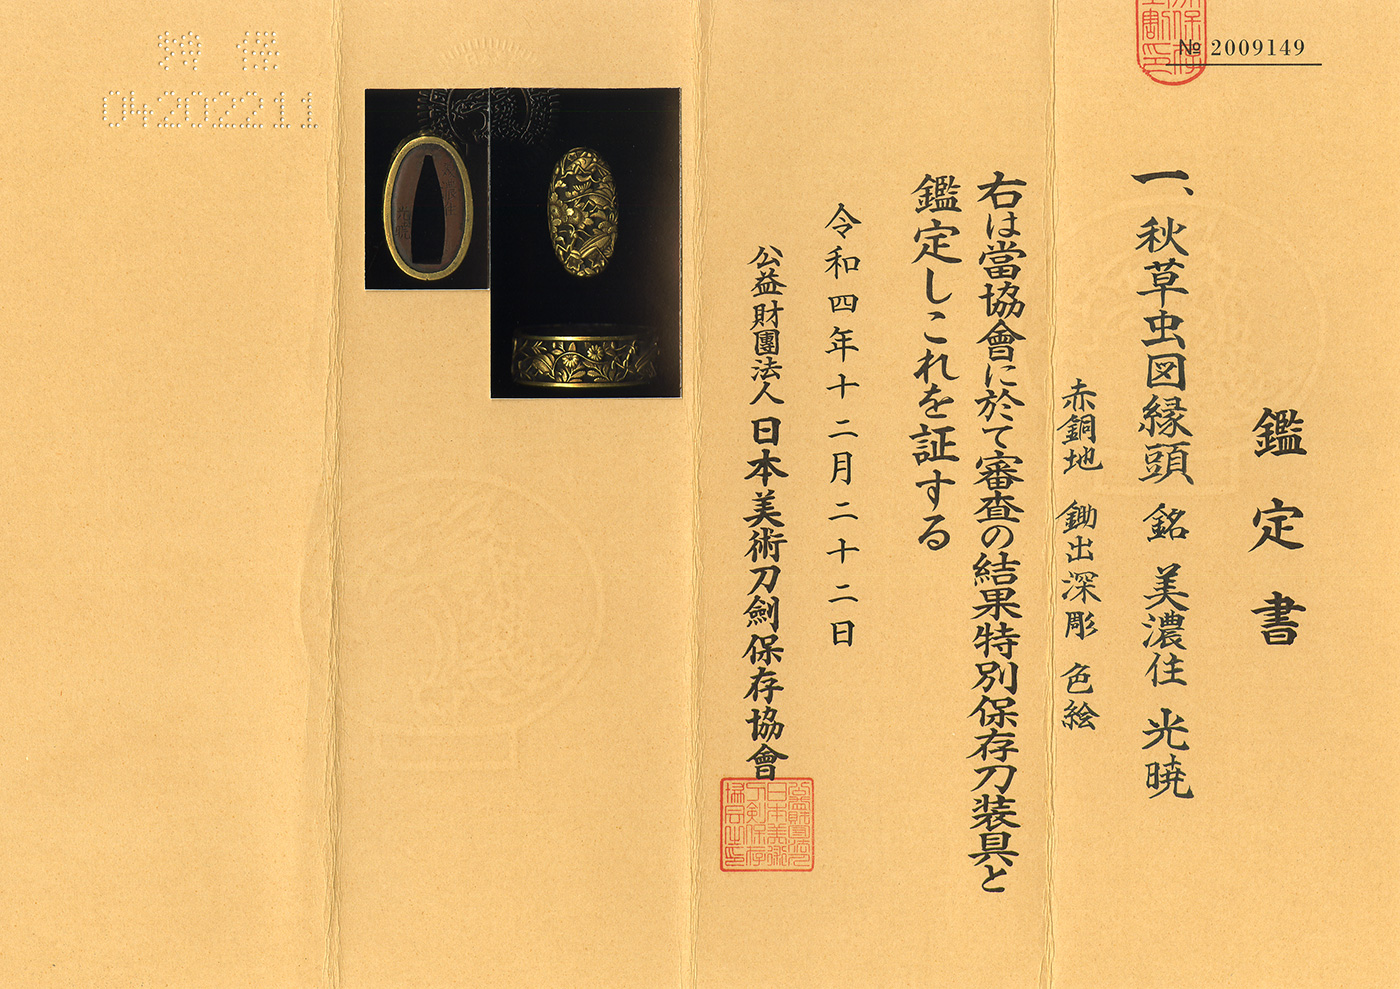 № 2009149
鑑定書
一、秋草虫図縁頭 銘 美濃住 光暁
赤銅地 鋤出深彫 色絵
右は當協會に於て審査の結果特別保存刀装具と
鑑定しこれを証する
令和四年十二月二十二日
公益財團法人 日本美術刀劍保存協會
04202211